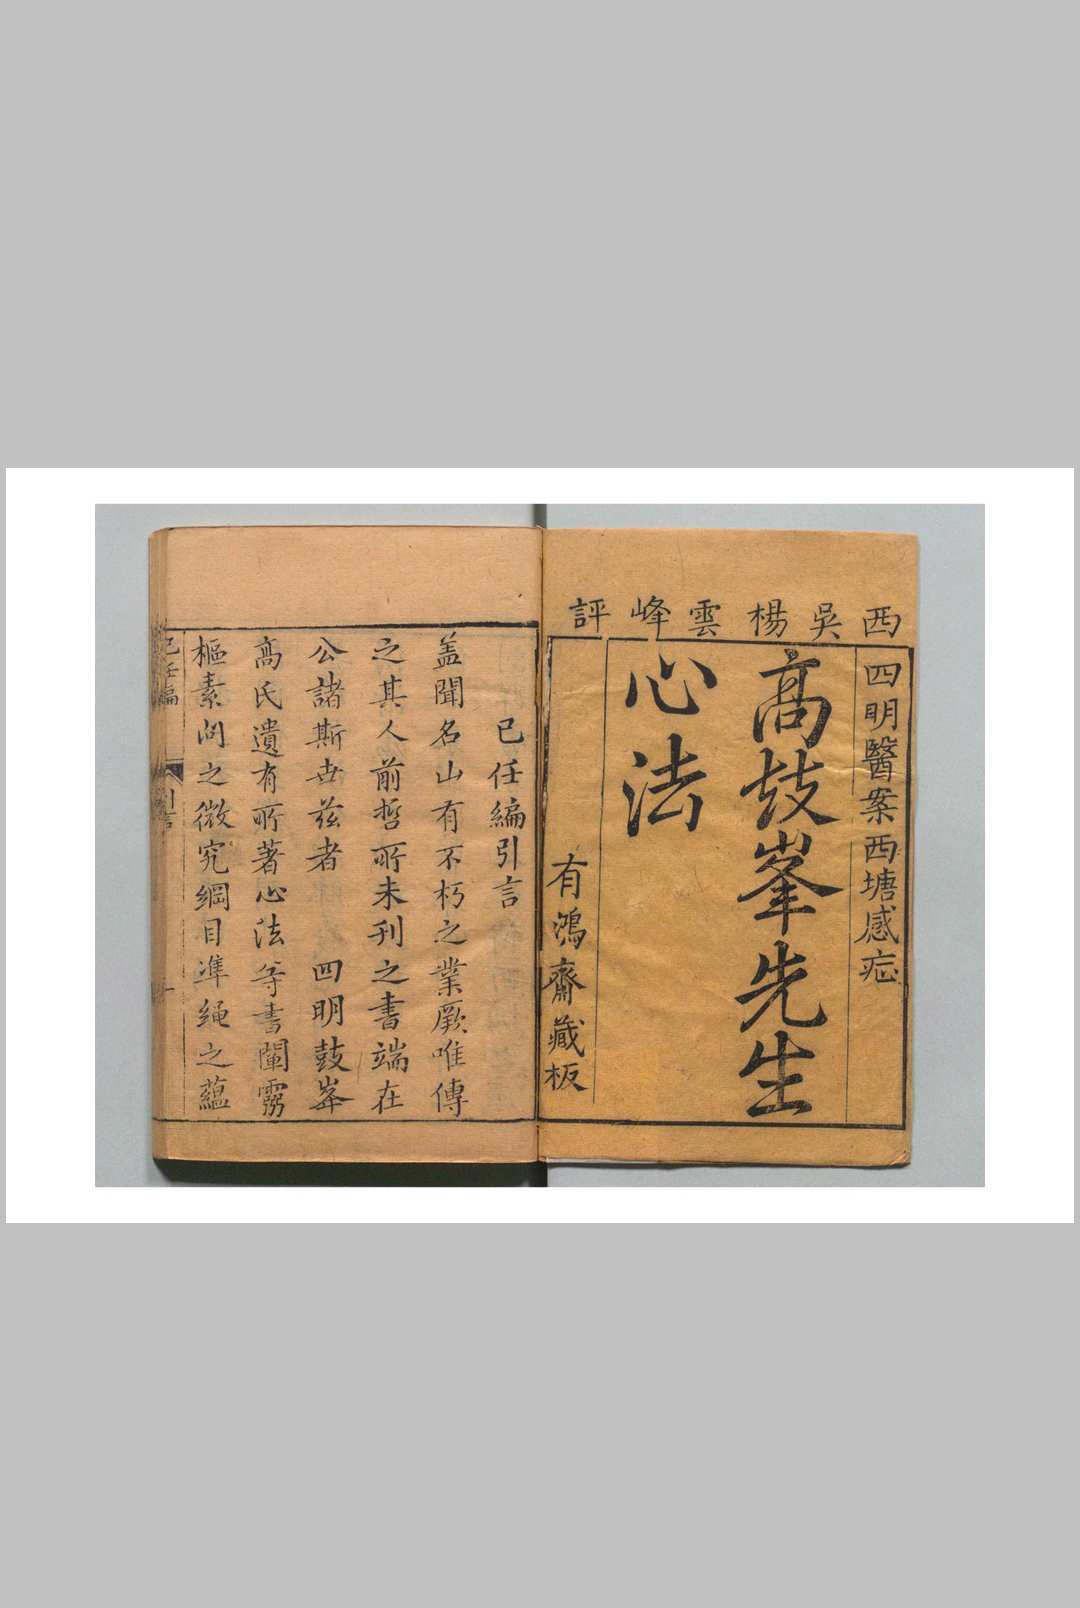 西吳楊雲峰評
四明醫案西塘感症
高鼓峯先生
心法
有鴻齋藏板
已任編引言
盖聞名山有不朽之業厥唯傳
之其人前哲所未刋之書端在
公諸斯世玆者 四明鼓峯
高氏遺有所著心法等書闡霛
樞素问之微究綱目準绳之蘊
已任编
引言